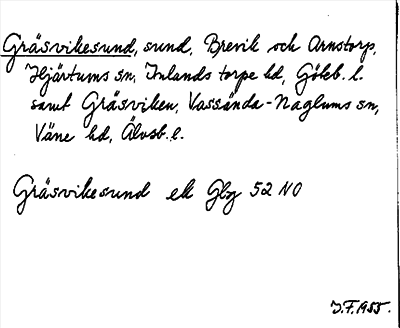 Gräsvikesund, sund, Brevik och Arnstorp,
Hjärtums sn, Inlands torpe hd, Göteb. l.
samt Gräsviken, Vassända-Naglums sn,
Väne hd, Älvsb. l.
Gräsvikesund ek Gbg 52 NO
J.F. 1955.